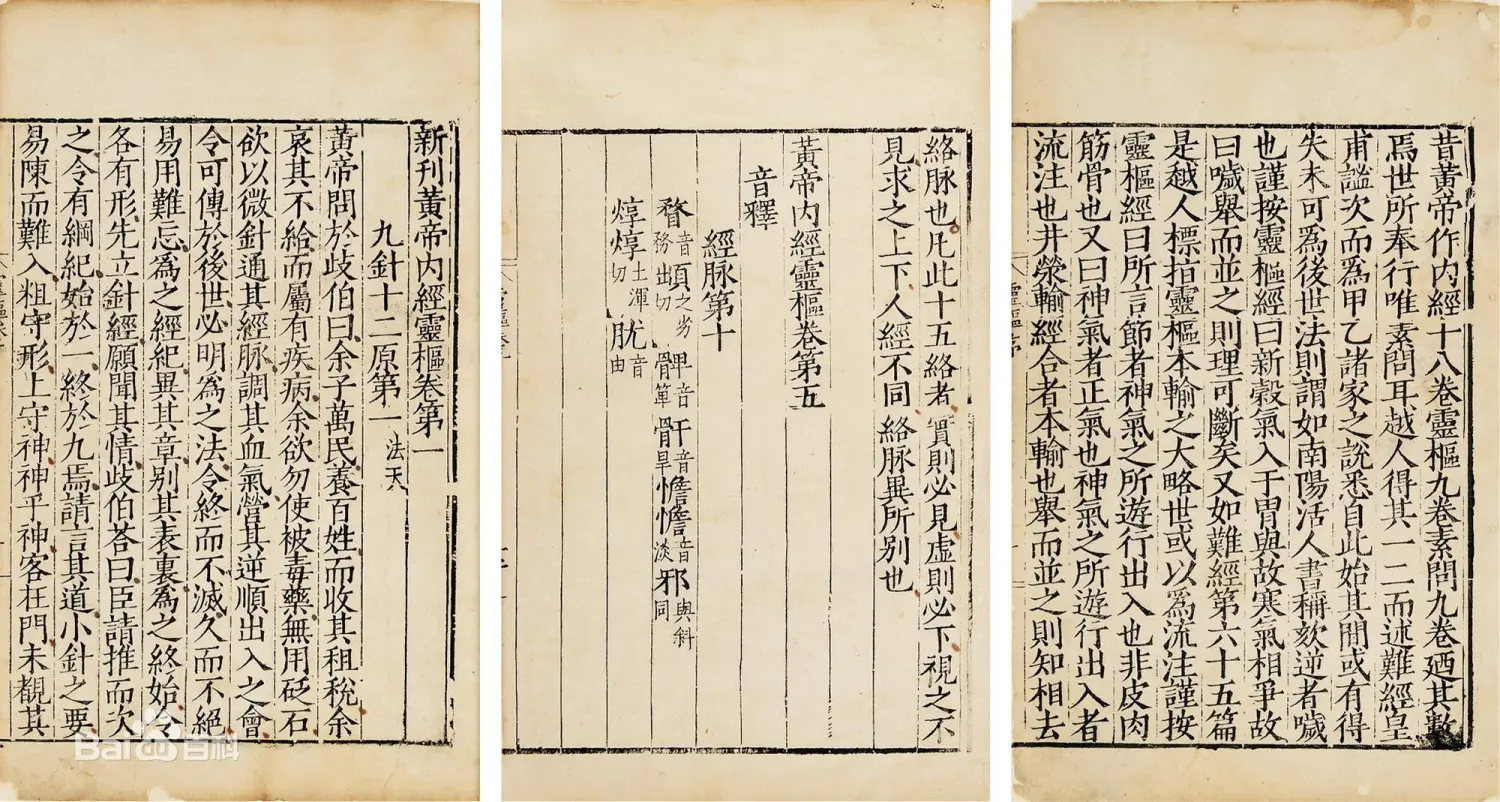 昔黃帝作內經十八卷靈樞九卷素問九卷廼其數
焉世所奉行唯素問耳越人得其一二而述難經皇
甫謐次而爲甲乙諸家之說悉自此始其間或有得
失未可爲後世法則謂如南陽活人書稱欬逆者噦
也謹按靈樞經曰新穀氣入于胃與故寒氣相爭故
曰噦舉而並之則理可斷矣又如難經第六十五篇
是越人標指靈樞本輸之大略世或以爲流注謹按
靈樞經曰所言節者神氣之所遊行出入也非皮肉
筋骨也又曰神氣者正氣也神氣之所遊行出入者
流注也井滎輸經合者本輸也舉而並之則知相去
絡脉也凡此十五絡者實則必見虛則必下視之不
見求之上下人經不同絡脉異所別也
黃帝內經靈樞卷第五
音釋
經脉第十
瞀音務䪼之劣切髀音箄骭音旱憺憺音淡邪與斜同
焞焞土渾切肬音由
新刊黃帝內經靈樞卷第一
九針十二原第一 法天
黃帝問於歧伯曰余子萬民養百姓而收其租稅余
哀其不給而屬有疾病余欲勿使被毒藥無用砭石
欲以微針通其經脉調其血氣營其逆順出入之會
令可傳於後世必明爲之法令終而不滅久而不絕
易用難忘爲之經紀異其章別其表裏爲之終始令
各有形先立針經願聞其情歧伯荅曰臣請推而次
之令有綱紀始於一終於九焉請言其道小針之要
易陳而難入粗守形上守神神乎神客在門未覩其
Bai 百科